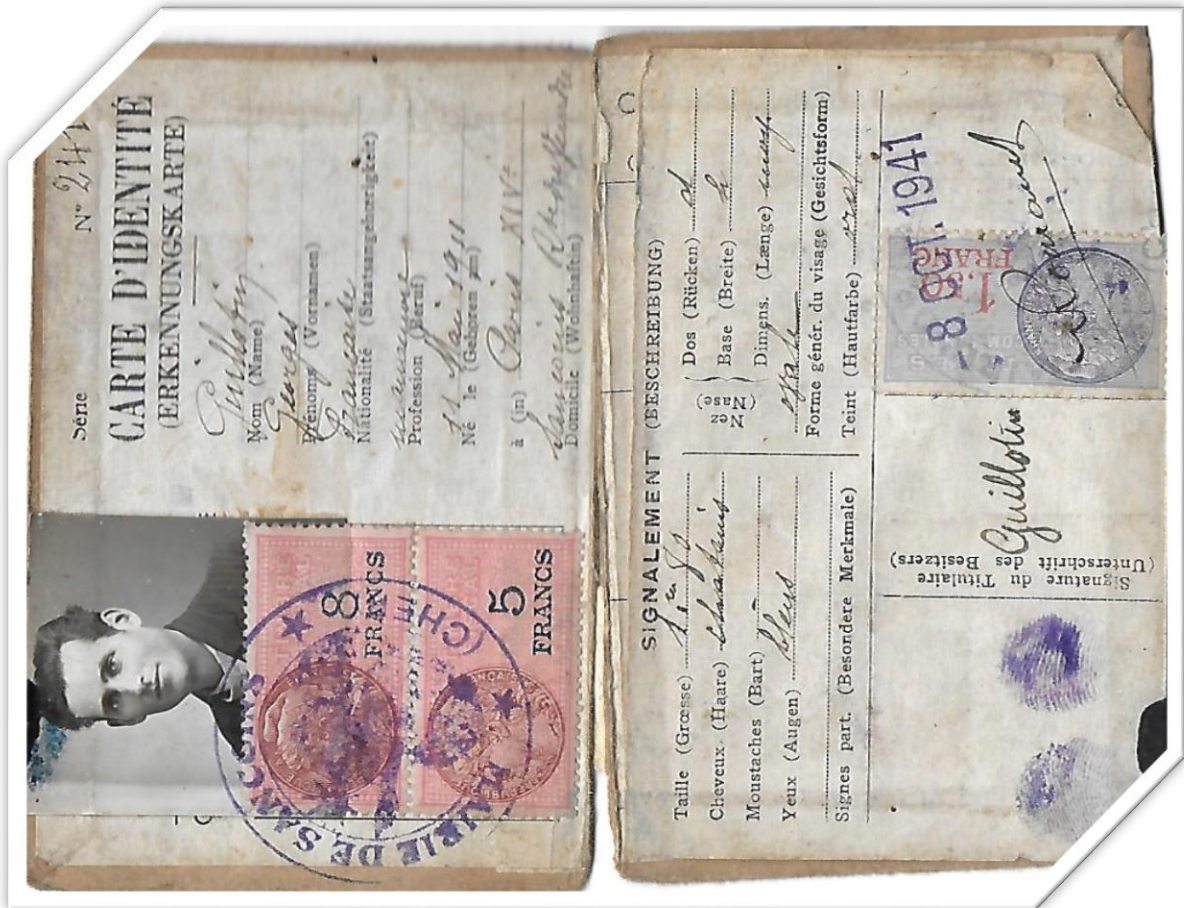 Série N° 241
CARTE D'IDENTITÉ
(ERKENNUNGSKARTE)
Guillotin
Nom (Name)
Georges
Prénom (Vornamen)
Française
Nationalité (Staatsangehörigkeit)
Profession (Beruf)
11 Mai 1911
Né le (Geboren am)
à (in) Paris XIVe
Sancoins
Domicile (Wohnhaftin)
8
FRANCS
5
FRANCS
MAIRIE DE SANCOINS
(CHER)
SIGNALEMENT (BESCHREIBUNG)
Taille (Grœsse) 1m
Cheveux (Haare) chatains
Moustaches (Bart)
Yeux (Augen) bleus
Signes part. (Besondere Merkmale)
Nez (Nase)
Dos (Rücken)
Base (Breite)
Dimens. (Længe) moy
ovale
Forme génér. du visage (Gesichtsform)
Teint (Hautfarbe)
Signature du Titulaire
(Unterschrift des Besitzers)
Guillotin
8 OCT. 1941
1.50
FRANC